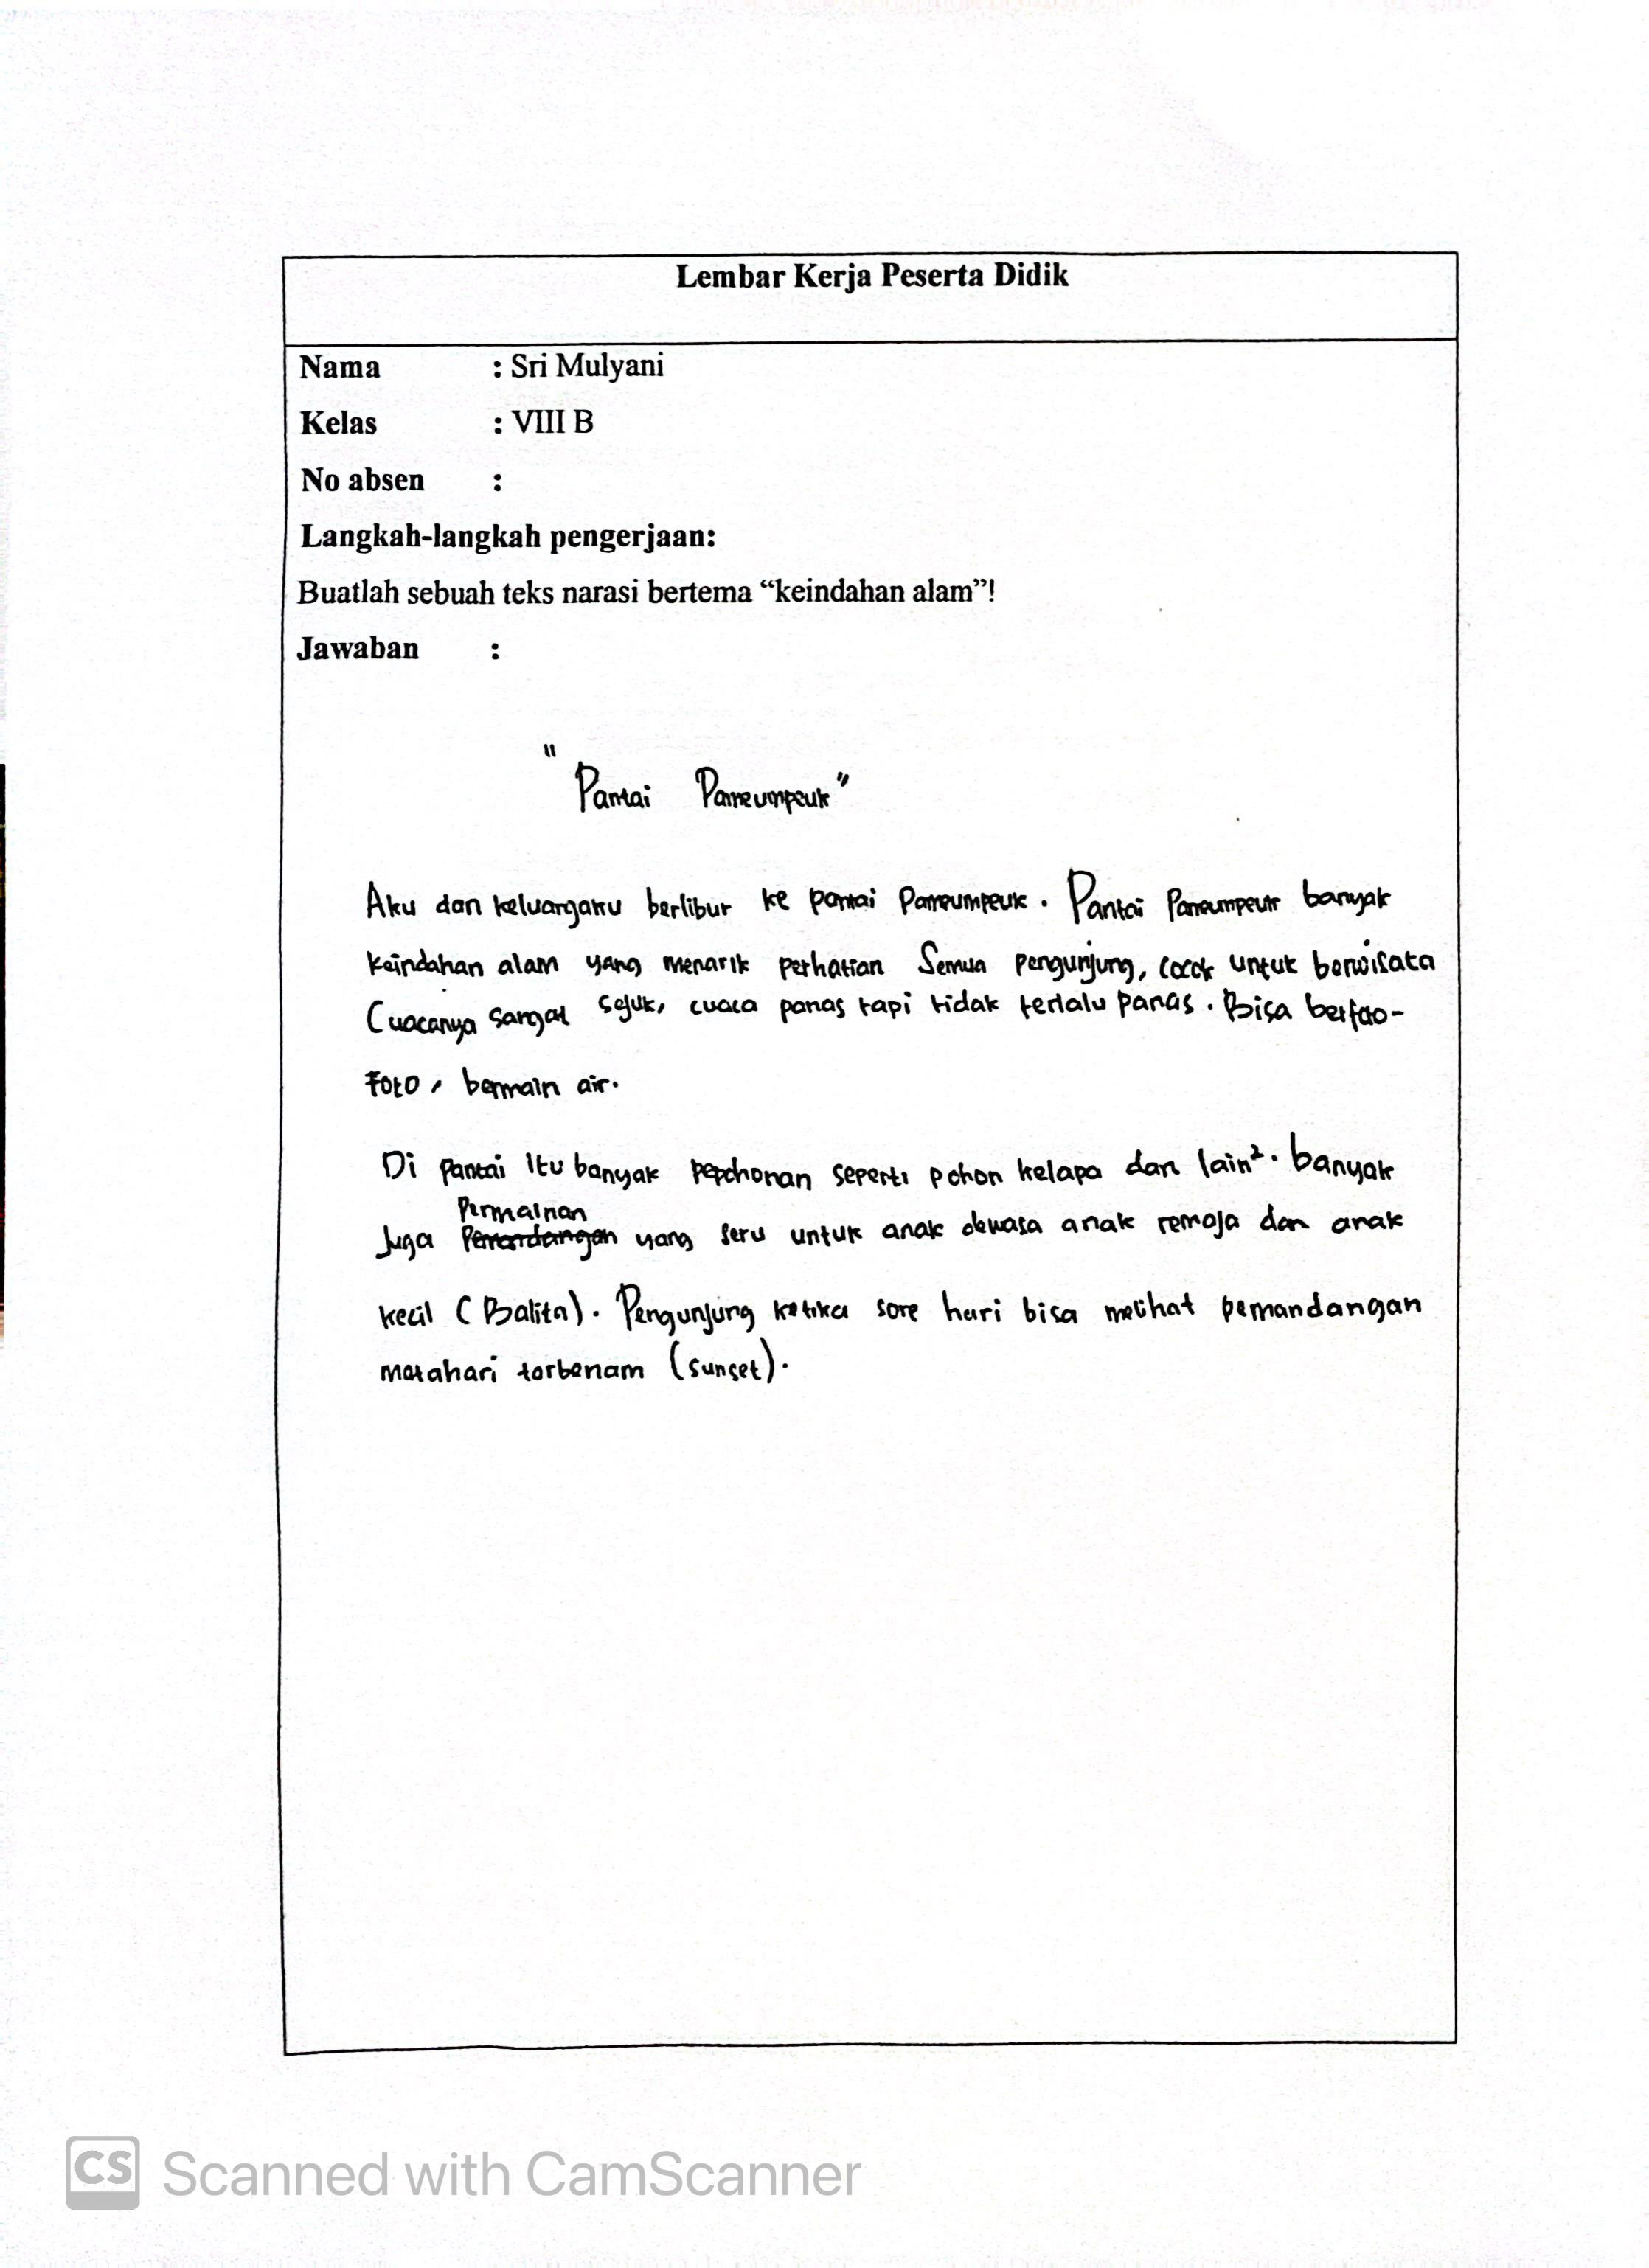 Lembar Kerja Peserta Didik
Nama : Sri Mulyani
Kelas : VIII B
No absen :
Langkah-langkah pengerjaan:
Buatlah sebuah teks narasi bertema “keindahan alam”!
Jawaban :
"Pantai Pameumpeuk"
Aku dan keluargaku berlibur ke pantai Pameumpeuk. Pantai Pameumpeuk banyak
keindahan alam yang menarik perhatian Semua pengunjung, cocok untuk berwisata
Cuacanya sangat sejuk, cuaca panas tapi tidak terlalu panas. Bisa berfoto-
foto, bermain air.
Di pantai itu banyak pepohonan seperti pohon kelapa dan lain². banyak
Permainan
Juga Pemandangan yang seru untuk anak dewasa anak remaja dan anak
kecil (Balita). Pengunjung ketika sore hari bisa melihat pemandangan
matahari terbenam (sunset).
CS Scanned with CamScanner